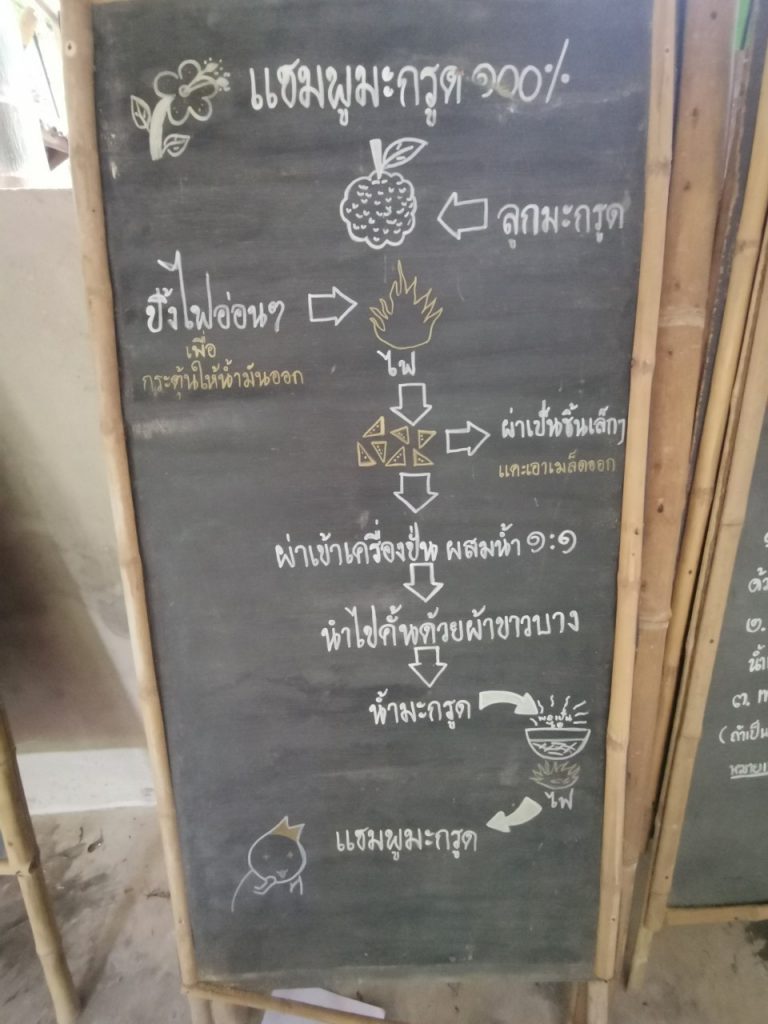 แชมพูมะกรูด ๑๐๐%
ลูกมะกรูด
ปิ้งไฟอ่อนๆ
เพื่อ
กระตุ้นให้น้ำมันออก
ไฟ
ผ่าเป็นชิ้นเล็กๆ
และเอาเมล็ดออก
ผ่าเข้าเครื่องปั่น ผสมน้ำ ๑:๑
นำไปคั้นด้วยผ้าขาวบาง
น้ำมะกรูด
ไฟ
แชมพูมะกรูด
๒.
๓.
(ถ้าเป็น